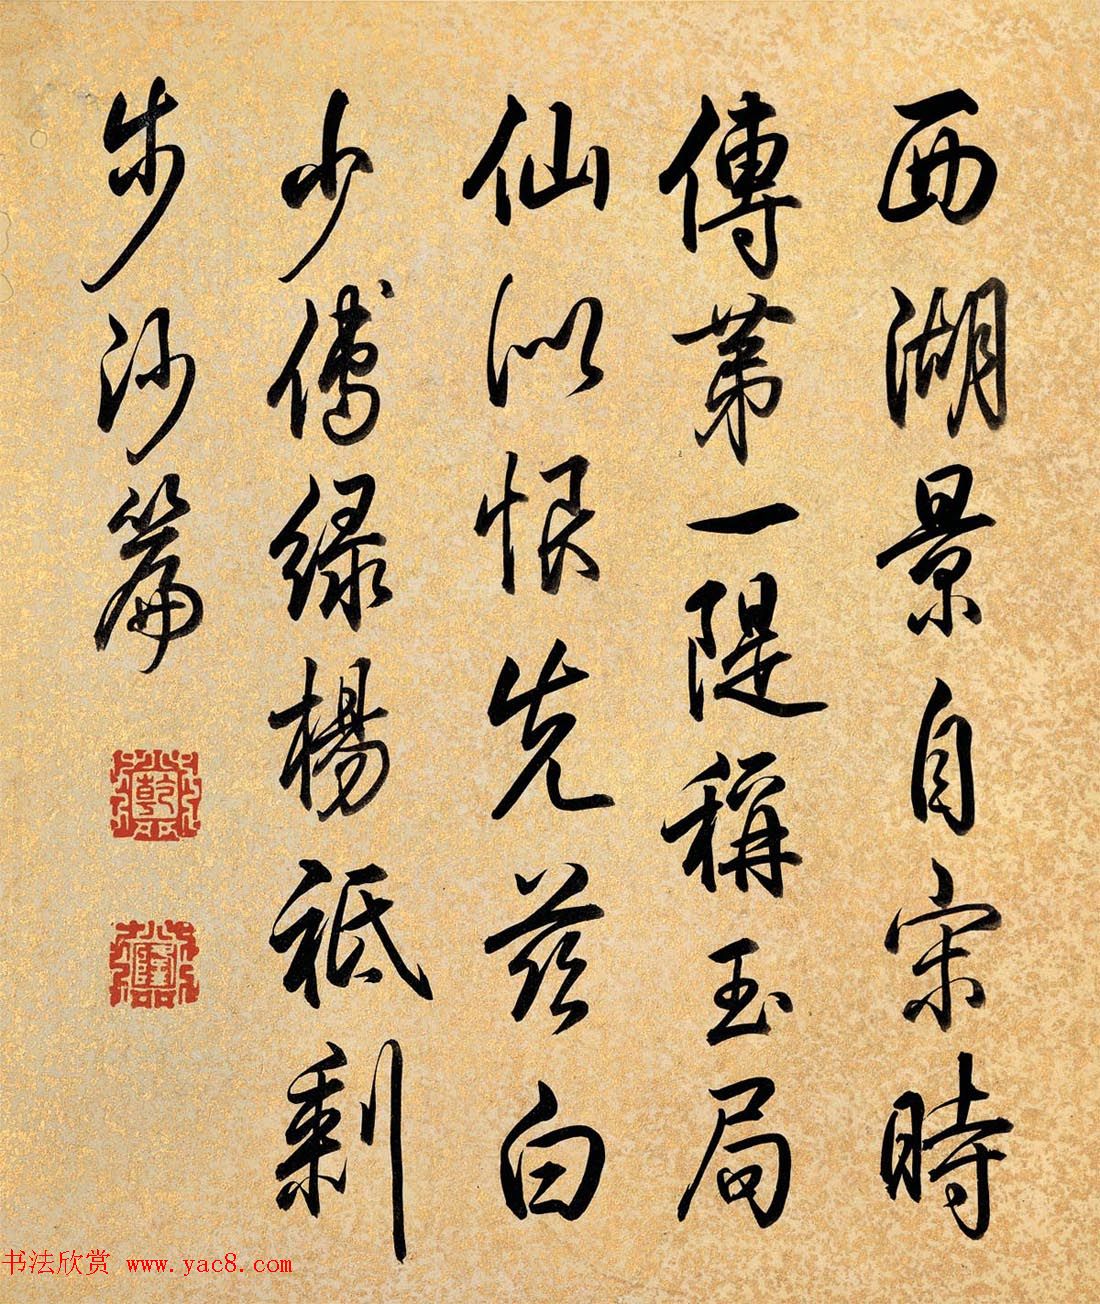 西湖景自宋時
傳第一隄稱玉局
仙似恨先茲白
少傅綠楊祗剩
步沙篇
乾
隆
书法欣赏 www.yac8.com